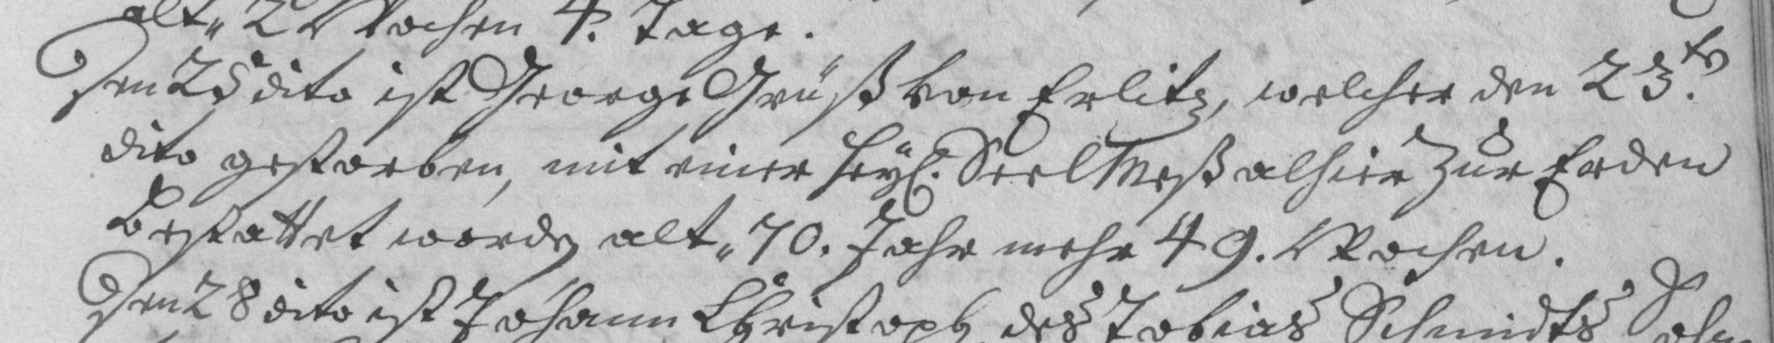 alt„ 2 Wochen 4. Tage.
Den 25 dito ist George Grüß von Erlitz, welcher den 23.ts
dito gestorben, mit einer heyl. Seel Meß alhier zur Erden
bestattet worden alt„ 70. Jahr mehr 49. Wochen.
Den 28 dito ist Johann Christoph des Tobias Schmidts Sohn